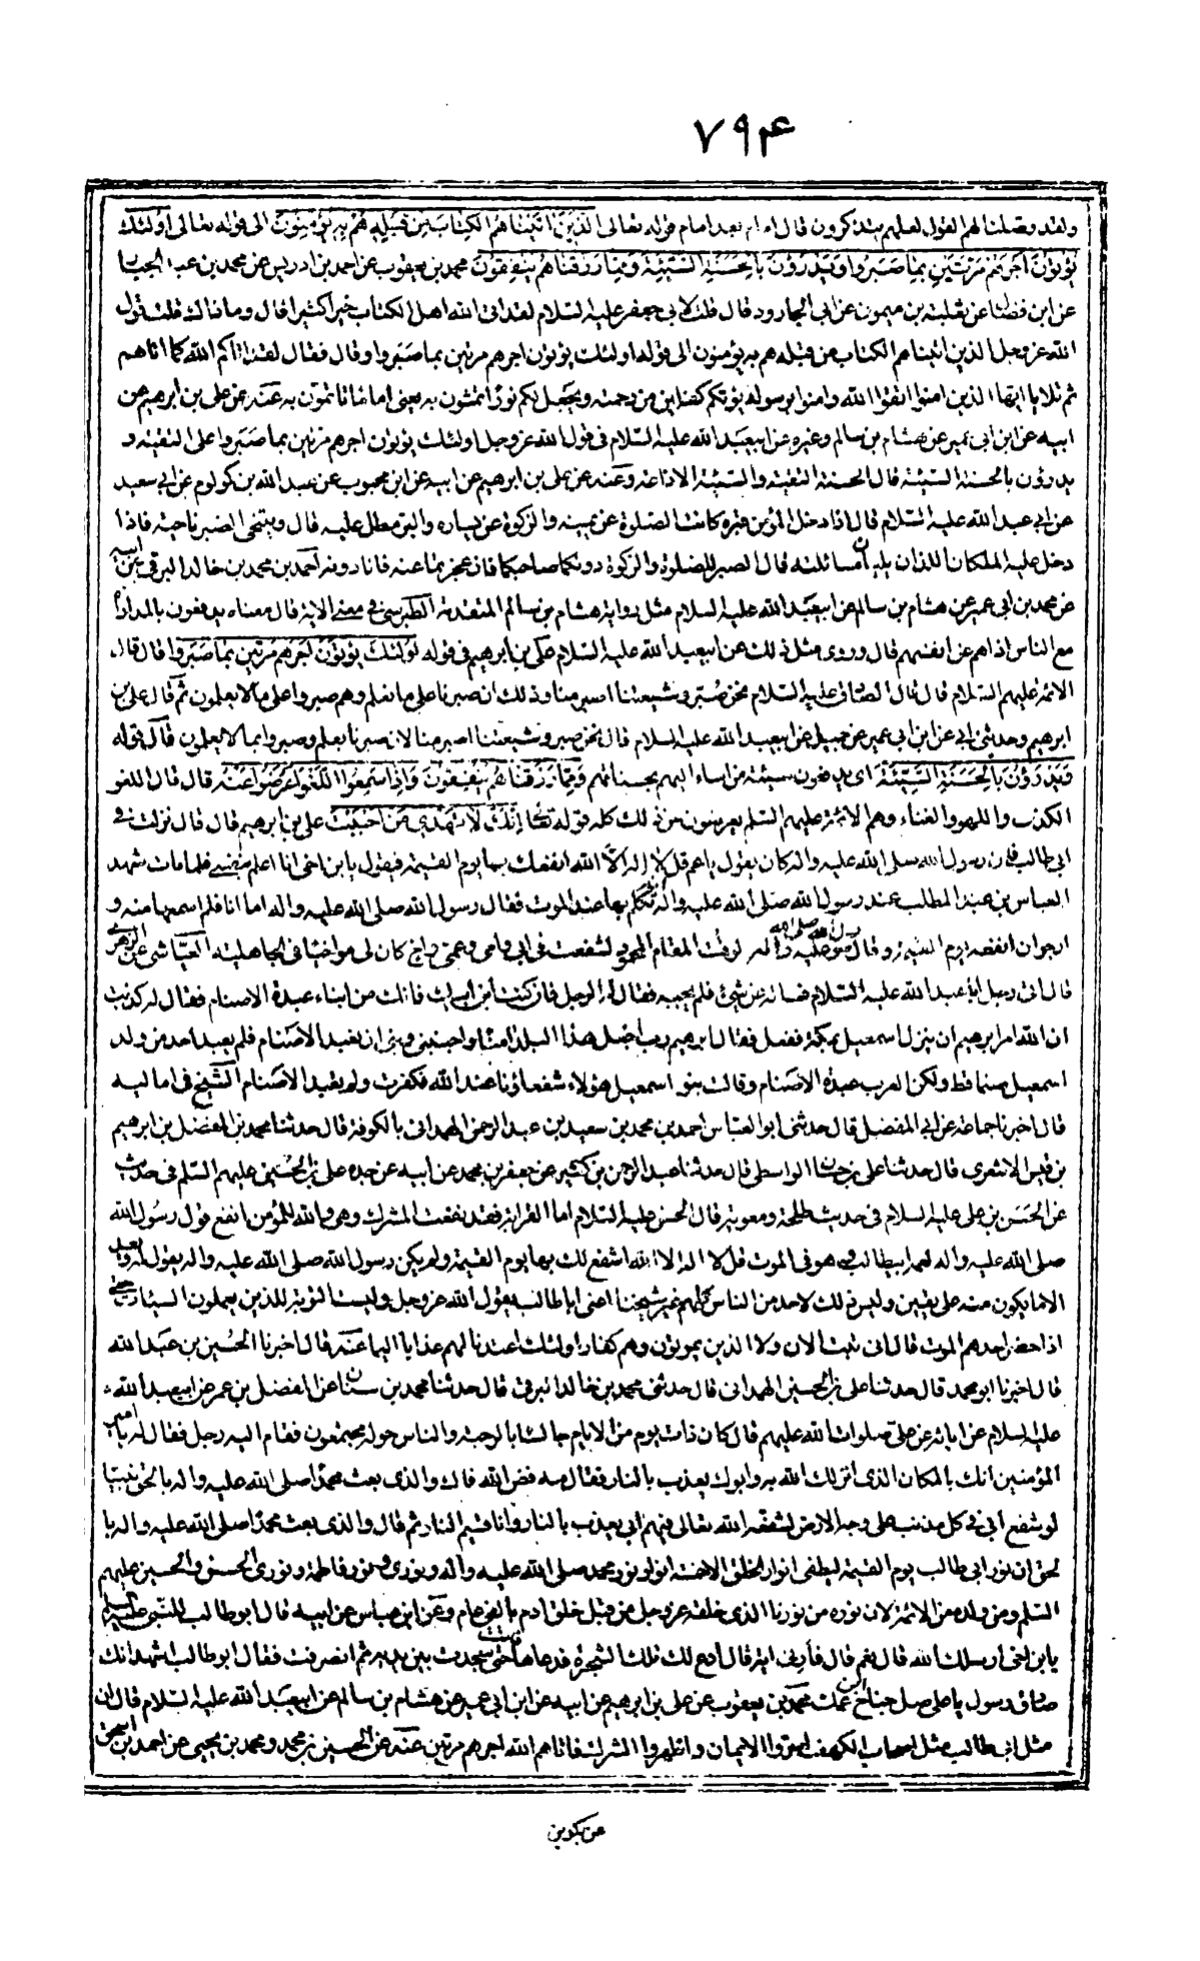 ٧٩۴
ولقد وصلنا لهم القول لعلهم يتذكرون قال امام بعد امام قوله تعالى الذين اتيناهم الكتاب من قبله هم به يؤمنون الى قوله تعالى اولئك
يؤتون اجرهم مرتين بما صبروا ويدرؤن بالحسنة السيئة ومما رزقناهم ينفقون محمد بن يعقوب عن احمد بن ادريس عن محمد بن عبد الجبار
عن ابن فضال عن ثعلبة بن ميمون عن ابى الجارود قال قلت لابى جعفر عليه السلام لقد اتى الله اهل الكتاب خيرا كثيرا قال وما ذاك قلت قول
الله عز وجل الذين اتيناهم الكتاب من قبله هم به يؤمنون الى قوله اولئك يؤتون اجرهم مرتين بما صبروا وقال فقال لقد اتاكم الله كما اتاهم
ثم تلا يا ايها الذين امنوا اتقوا الله وامنوا برسوله يؤتكم كفلين من رحمته ويجعل لكم نورا تمشون به يعنى اماما تاتمون به عنه عن على بن ابرهيم عن
ابيه عن ابن ابى عمير عن هشام بن سالم وغيره عن ابيعبد الله عليه السلام فى قول الله عز وجل اولئك يؤتون اجرهم مرتين بما صبروا على التقية و
يدرؤن بالحسنة السيئة قال الحسنة التقية والسيئة الاذاعة وعنه عن على بن ابرهيم عن ابيه عن ابن محبوب عن عبد الله بن كولوم عن ابى سعيد
عن ابى عبد الله عليه السلام قال اذا دخل المؤمن قبره كانت الصلوة عن يمينه والزكوة عن يساره والبر مطل عليه قال ويتنحى الصبر ناحية فاذا
دخل عليه الملكان اللذان يليان مسائلته قال الصبر للصلوة والزكوة دونكما صاحبكما فان عجزتما عنه فانا دونه احمد بن محمد بن خالد البرقى عن ابيه
عن محمد بن ابى عمير عن هشام بن سالم عن ابيعبد الله عليه السلام مثل رواية هشام بن سالم المتقدمة الطبرسى فى معنى الاية قال معناه يدفعون بالمداراة
مع الناس اذاهم عن انفسهم قال وروى مثل ذلك عن ابيعبد الله عليه السلام على بن ابرهيم فى قوله اولئك يؤتون اجرهم مرتين بما صبروا قال قال
الائمة عليهم السلام قال قال الصادق عليه السلام نحن صبر وشيعتنا اصبر منا وذلك ان صبرنا على ما نعلم وهم صبروا على ما لا يعلمون ثم قال على بن
ابرهيم وحدثنى ابى عن ابن ابى عمير عن جميل عن ابيعبد الله عليه السلام قال نحن صبر وشيعتنا اصبر منا لانا صبرنا بعلم وصبروا بما لا يعلمون قال قوله
ويدرؤن بالحسنة السيئة اى يدفعون سيئة من اساء اليهم بحسناتهم ومما رزقناهم ينفقون واذا سمعوا اللغو اعرضوا عنه قال قال اللغو
الكذب واللهو والغناء وهم الائمة عليهم السلم يعرضون من ذلك كله قوله تعالى انك لا تهدى من احببت على بن ابرهيم قال قال نزلت فى
ابى طالب فان رسول الله صلى الله عليه واله كان يقول يا عم قل لا اله الا الله انفعك بها يوم القيمة فيقول يا بن اخى انا اعلم بنفسى فلما مات شهد
العباس بن عبد المطلب عند رسول الله صلى الله عليه واله انه تكلم بها عند الموت فقال رسول الله صلى الله عليه واله اما انا فلم اسمعها منه و
ارجوان انفعه يوم القيمة وقال رسول الله صلى الله عليه واله لو قمت المقام المحمود لشفعت فى ابى وامى وعمى واخ كان لى مواخيا فى الجاهلية العياشى عن الزهرى
قال اتى رجل ابا عبد الله عليه السلام فساله عن شئ فلم يجبه فقال له الرجل فان كنت ابن ابيك فانك من ابناء عبدة الاصنام فقال له كذبت
ان الله امر ابرهيم ان ينزل اسمعيل بمكة ففعل فقال ابرهيم رب اجعل هذا البلد امنا واجنبنى وبنى ان نعبد الاصنام فلم يعبد احد من ولد
اسمعيل صنما قط ولكن العرب عبدة الاصنام وقالت بنو اسمعيل هؤلاء شفعاؤنا عند الله فكفرت ولم يعبد الاصنام الشيخ فى اماليه
قال اخبرنا جماعة عن ابى المفضل قال حدثنى ابو العباس احمد بن محمد بن سعيد بن عبد الرحمن الهمدانى بالكوفة قال حدثنا محمد بن المفضل بن ابرهيم
بن قيس الاشعرى قال حدثنا على بن حسان الواسطى قال حدثنا عبد الرحمن بن كثير عن جعفر بن محمد عن ابيه عن جده على بن الحسين عليهم السلم فى حديث
عن الحسن بن على عليه السلام فى حديث طلحة ومعوية قال الحسن عليه السلام اما القرابة فقد نفعت المشرك وهى والله للمؤمن انفع قول رسول الله
صلى الله عليه واله لعمه ابيطالب وهو فى الموت قل لا اله الا الله اشفع لك بها يوم القيمة ولم يكن رسول الله صلى الله عليه واله يقول له ويعد
الا ما يكون منه على يقين وليس ذلك لاحد من الناس كلهم غير شيخنا اعنى ابا طالب يقول الله عز وجل وليست التوبة للذين يعملون السيئات حتى
اذا حضر احدهم الموت قال انى تبت الان ولا الذين يموتون وهم كفار اولئك اعتدنا لهم عذابا اليما عنه قال اخبرنا الحسين بن عبد الله
قال اخبرنا ابو محمد قال حدثنا على بن الحسين الهمدانى قال حدثنى محمد بن خالد البرقى قال حدثنا محمد بن سنان عن المفضل بن عمر عن ابيعبد الله
عليه السلام عن ابائه عن على صلوات الله عليهم قال كان ذات يوم من الايام جالسا بالرحبة والناس حوله مجتمعون فقام اليه رجل فقال له يا امير
المؤمنين انك بالمكان الذى انزلك الله به وابوك يعذب بالنار فقال مه فض الله فاك والذى بعث محمدا صلى الله عليه واله بالحق نبيا
لو شفع ابى فى كل مذنب على وجه الارض لشفعه الله تعالى فيهم ابى يعذب بالنار وانا قسيم النار ثم قال والذى بعث محمدا صلى الله عليه واله با
لحق ان نور ابى طالب يوم القيمة ليطفى انوار الخلق الا خمسة انوار نور محمد صلى الله عليه واله ونورى ونور فاطمة ونورى الحسن والحسين عليهم
السلم ومن ولده من الائمة لان نوره من نورنا الذى خلقه عز وجل من قبل خلق ادم بالفى عام وعن ابن عباس عن ابيه قال ابو طالب للنبى عليه السلم
يا بن اخى ارسلك الله قال نعم قال فأرنى اية قال ادع لك تلك الشجرة فدعاها حتى سجدت بين يديه ثم انصرفت فقال ابو طالب اشهد انك
صادق رسول يا على صل جناح ابن عمك محمد بن يعقوب عن على بن ابرهيم عن ابيه عن ابن ابى عمير عن هشام بن سالم عن ابيعبد الله عليه السلام قال ان
مثل ابى طالب مثل اصحاب الكهف اسروا الايمان واظهروا الشرك فاتاهم الله اجرهم مرتين عنه عن الحسين بن محمد ومحمد بن يحيى عن احمد بن اسحق
عن بكر بن